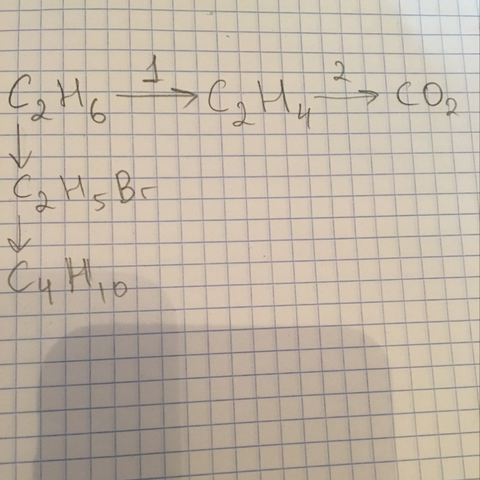 C₂H₆ —1→ C₂H₄ —2→ CO₂
↓
C₂H₅Br
↓
C₄H₁₀